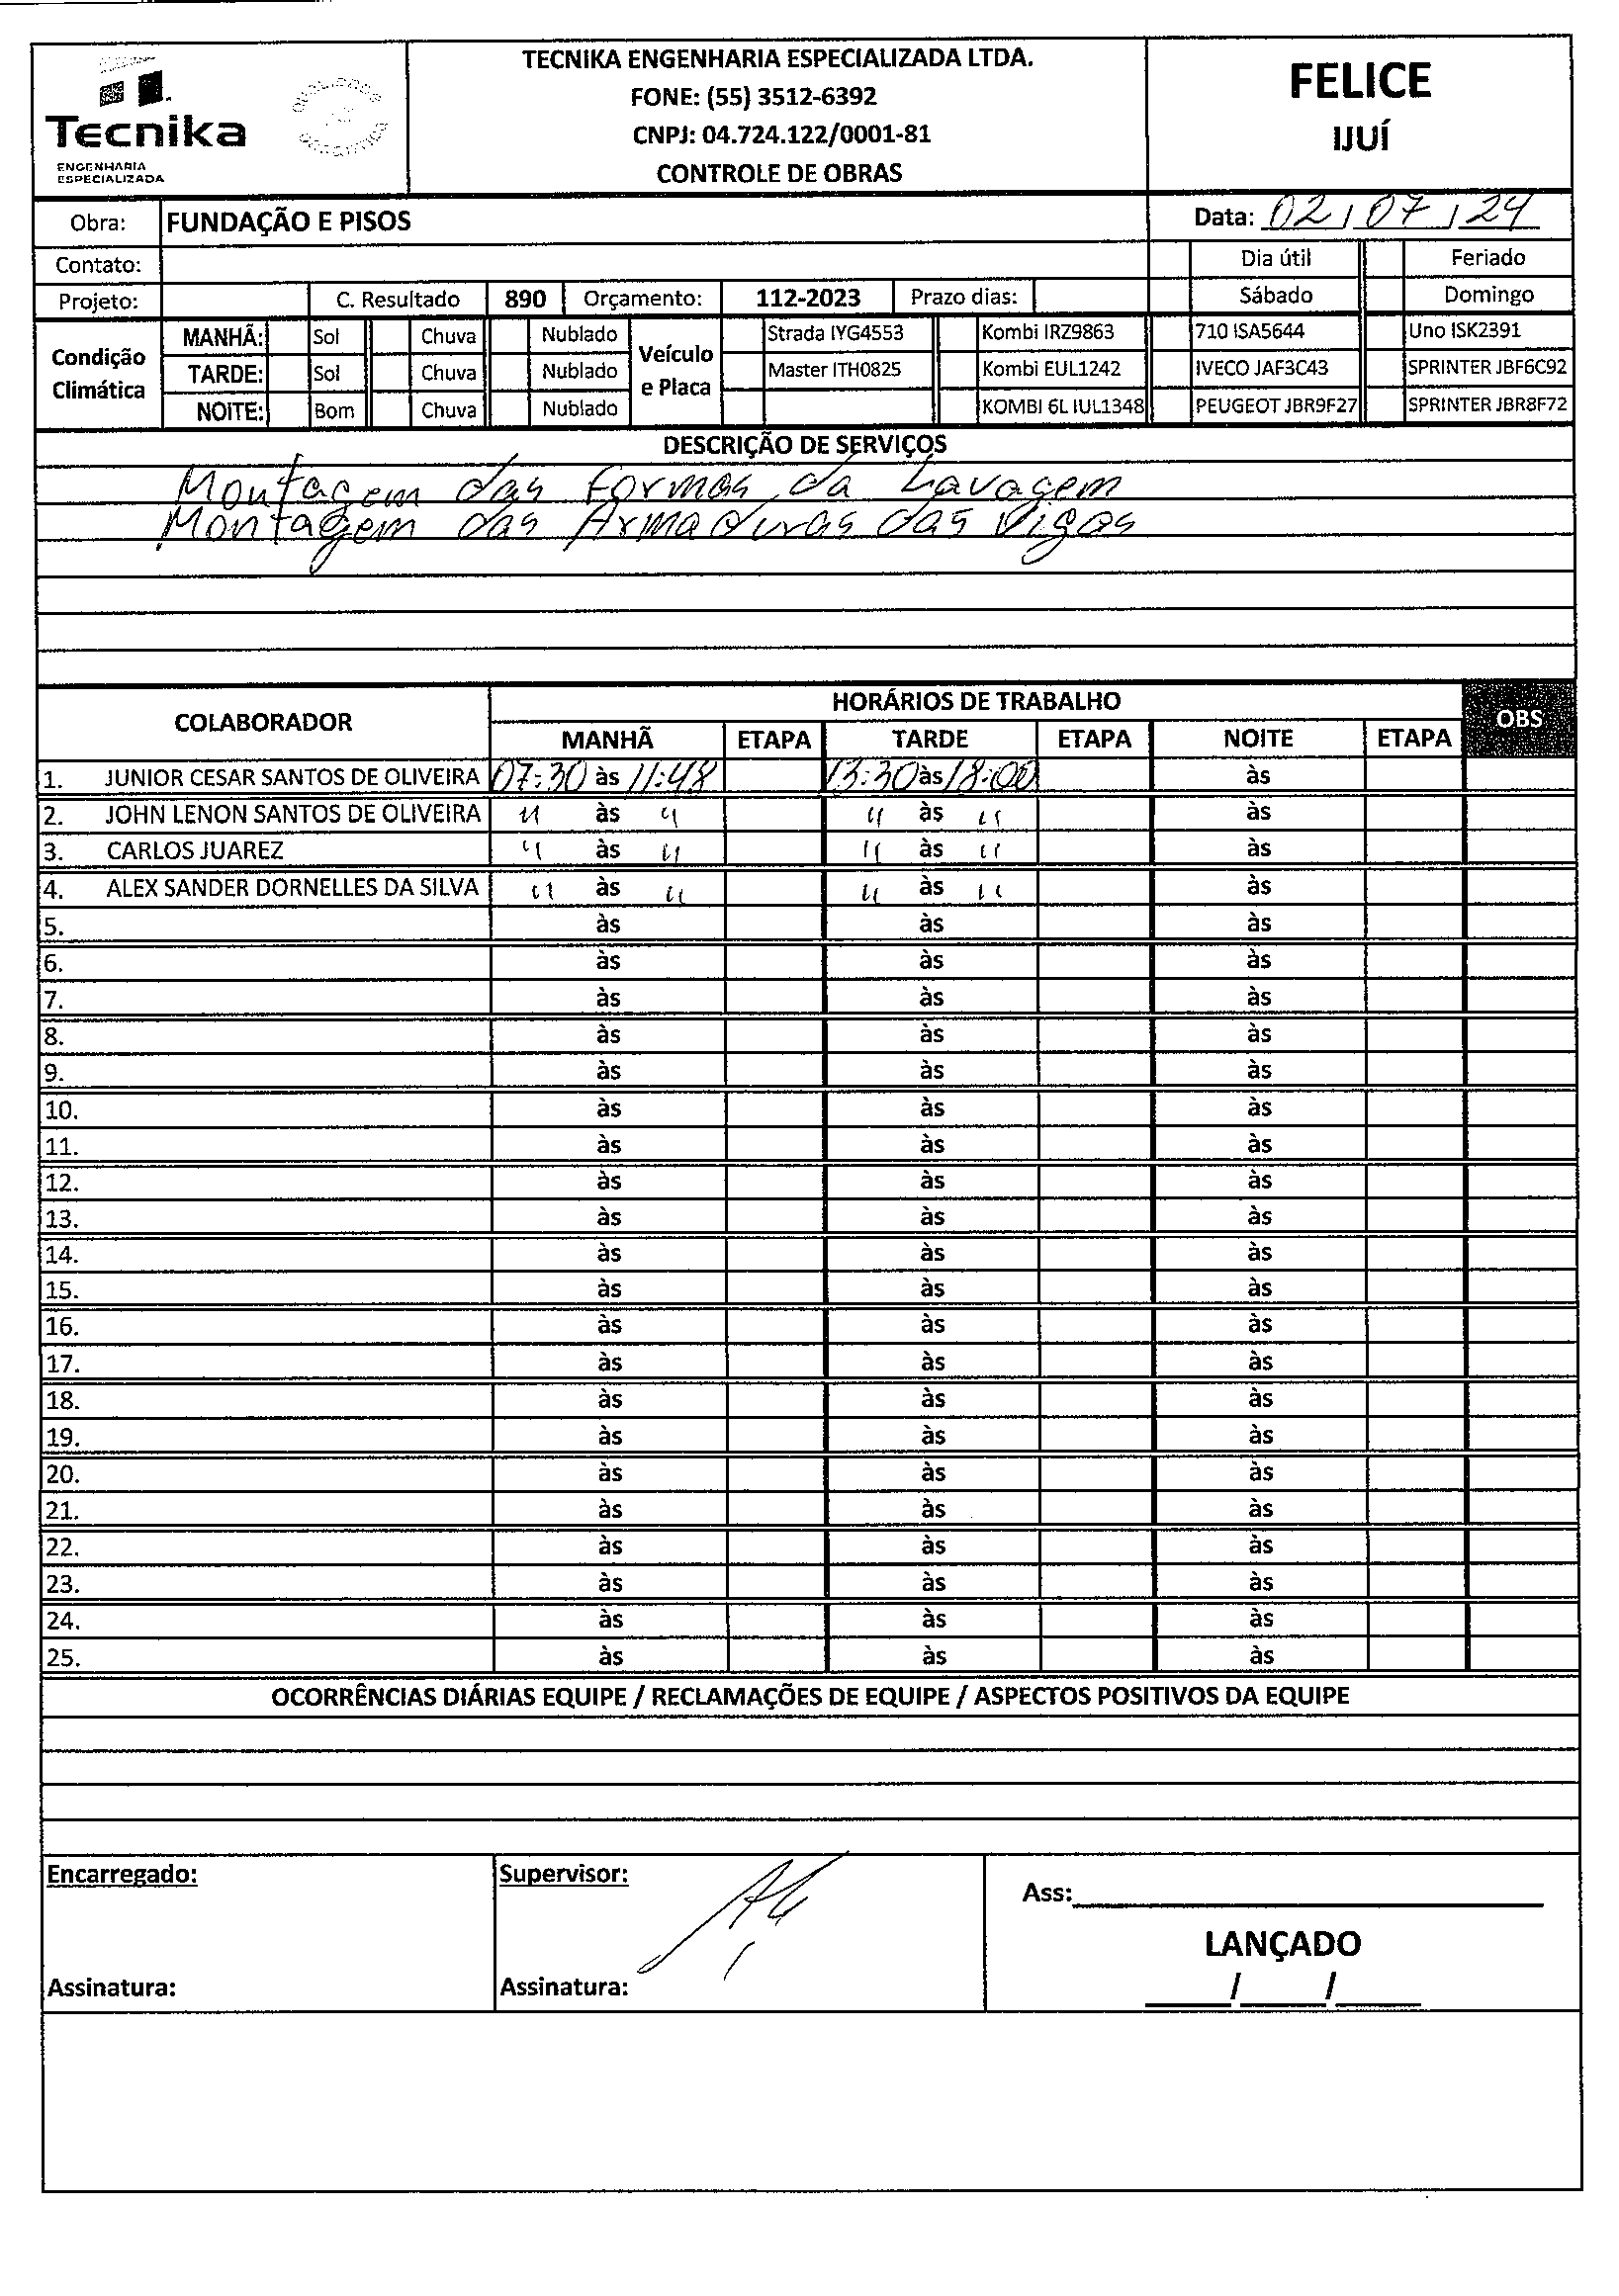 TECNIKA ENGENHARIA ESPECIALIZADA LTDA.
FONE: (55) 3512-6392
CNPJ: 04.724.122/0001-81
CONTROLE DE OBRAS
Tecnika
ENGENHARIA
ESPECIALIZADA
FELICE
IJUÍ
Obra: FUNDAÇÃO E PISOS Data: 02/07/24
Contato: Dia útil Feriado
Projeto: C. Resultado 890 Orçamento: 112-2023 Prazo dias: Sábado Domingo
Condição Climática
MANHÃ: Sol Chuva Nublado
TARDE: Sol Chuva Nublado
NOITE: Bom Chuva Nublado
Veículo e Placa
Strada IYG4553 Kombi IRZ9863 710 ISA5644 Uno ISK2391
Master ITH0825 Kombi EUL1242 IVECO JAF3C43 SPRINTER JBF6C92
KOMBI 6L IUL1348 PEUGEOT JBR9F27 SPRINTER JBR8F72
DESCRIÇÃO DE SERVIÇOS
Montagem das formas da Lavagem
Montagem das Armaduras das Vigas
COLABORADOR HORÁRIOS DE TRABALHO OBS
MANHÃ ETAPA TARDE ETAPA NOITE ETAPA
1. JUNIOR CESAR SANTOS DE OLIVEIRA 07:30 às 11:48 13:30 às 18:00 às
2. JOHN LENON SANTOS DE OLIVEIRA " às " " às " às
3. CARLOS JUAREZ " às " " às " às
4. ALEX SANDER DORNELLES DA SILVA " às " " às " às
5. às às às
6. às às às
7. às às às
8. às às às
9. às às às
10. às às às
11. às às às
12. às às às
13. às às às
14. às às às
15. às às às
16. às às às
17. às às às
18. às às às
19. às às às
20. às às às
21. às às às
22. às às às
23. às às às
24. às às às
25. às às às
OCORRÊNCIAS DIÁRIAS EQUIPE / RECLAMAÇÕES DE EQUIPE / ASPECTOS POSITIVOS DA EQUIPE
Encarregado: Supervisor: Ass:
LANÇADO
Assinatura: Assinatura: / /